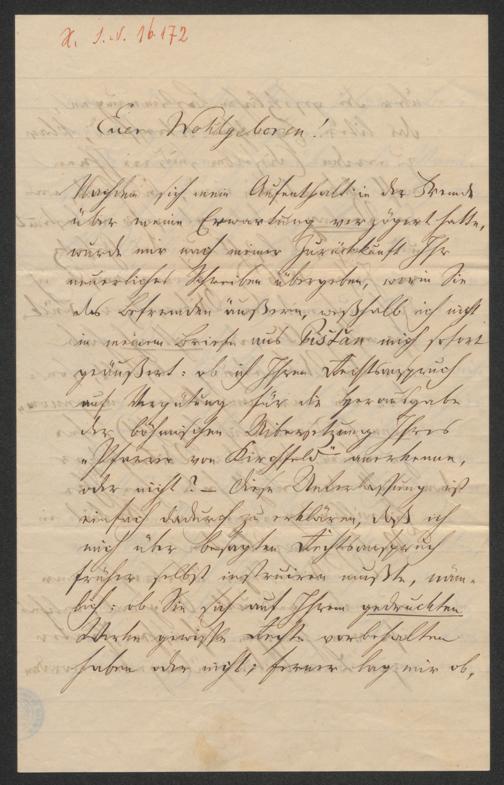 H. I. N. 16172
Euer Wohlgeboren!
Nachdem sich mein Aufenthalt in der Fremde
über meine Erwartung verzögert hatte,
wurde mir nach meiner Zurückkunft Ihr
neuerliches Schreiben übergeben, worin Sie
das Befremden äußern, weßhalb ich nicht
in meinem Briefe aus Pistan mich sofort
geäußert: ob ich Ihren Rechtsanspruch
auf Vergütung für die Herausgabe
der böhmischen Uibersetzung Ihres
„Pfarrer von Kirchfeld" anerkenne,
oder nicht? – Diese Unterlassung ist
einfach dadurch zu erklären, daß ich
mich über besagten Rechtsanspruch
früher selbst instruiren mußte, näm-
lich: ob Sie sich auf Ihrem gedruckten
Werke gewisse Rechte vorbehalten
haben oder nicht; ferner lag mir ob,